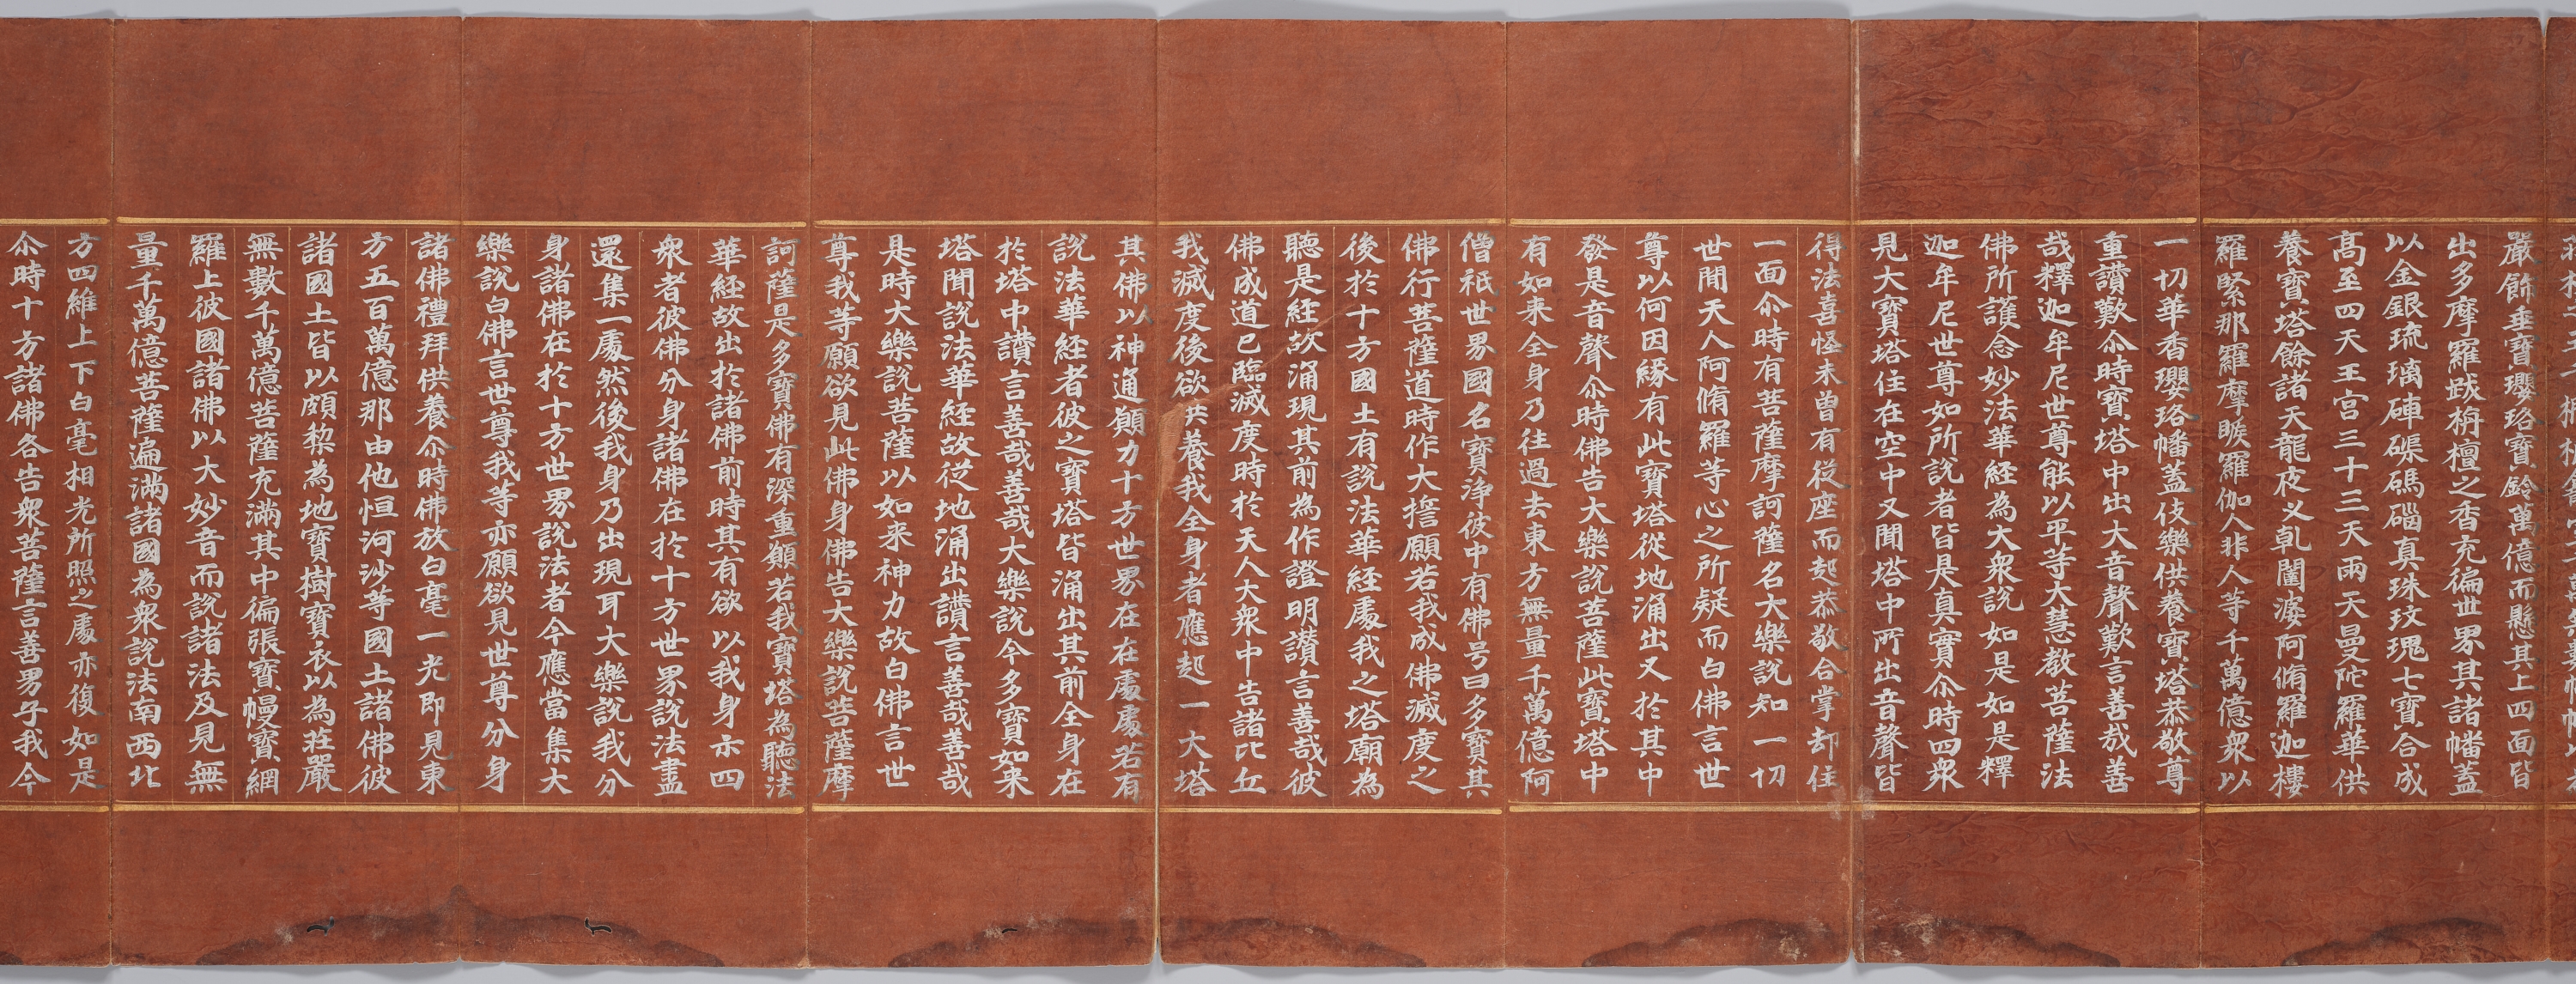 嚴飾垂寶瓔珞寶鈴萬億而懸其上四面皆
出多摩羅跋栴檀之香充徧世界其諸幡蓋
以金銀琉璃硨磲碼碯真珠玫瑰七寶合成
高至四天王宮三十三天雨天曼陀羅華供
養寶塔餘諸天龍夜叉乹闥婆阿脩羅迦樓
羅緊那羅摩睺羅伽人非人等千萬億衆以
一切華香瓔珞幡蓋伎樂供養寶塔恭敬尊
重讚歎尒時寶塔中出大音聲歎言善哉善
哉釋迦牟尼世尊能以平等大慧教菩薩法
佛所護念妙法華経為大衆說如是如是釋
迦牟尼世尊如所說者皆是真實尒時四衆
見大寶塔住在空中又聞塔中所出音聲皆
得法喜怪未曾有從座而起恭敬合掌却住
一面尒時有菩薩摩訶薩名大樂說知一切
世間天人阿脩羅等心之所疑而白佛言世
尊以何因緣有此寶塔從地涌出又於其中
發是音聲尒時佛告大樂說菩薩此寶塔中
有如来全身乃往過去東方無量千萬億阿
僧祇世界國名寶淨彼中有佛号曰多寶其
佛行菩薩道時作大擔願若我成佛滅度之
後於十方國土有說法華経處我之塔廟為
聽是経故涌現其前為作證明讚言善哉彼
佛成道已臨滅度時於天人大衆中告諸比丘
我滅度後欲供養我全身者應起一大塔
其佛以神通願力十方世界在在處處若有
說法華経者彼之寶塔皆涌出其前全身在
於塔中讚言善哉善哉大樂說今多寶如来
塔聞說法華経故從地涌出讚言善哉善哉
是時大樂說菩薩以如来神力故白佛言世
尊我等願欲見此佛身佛告大樂說菩薩摩
訶薩是多寶佛有深重願若我寶塔為聽法
華経故出於諸佛前時其有欲以我身示四
衆者彼佛分身諸佛在於十方世界說法盡
還集一處然後我身乃出現耳大樂說我分
身諸佛在於十方世界說法者今應當集大
樂說白佛言世尊我等亦願欲見世尊分身
諸佛禮拜供養尒時佛放白毫一光即見東
方五百萬億那由他恒河沙等國土諸佛彼
諸國土皆以頗黎為地寶樹寶衣以為莊嚴
無數千萬億菩薩充滿其中徧張寶幔寶網
羅上彼國諸佛以大妙音而說諸法及見無
量千萬億菩薩遍滿諸國為衆說法南西北
方四維上下白毫相光所照之處亦復如是
尒時十方諸佛各告衆菩薩言善男子我今